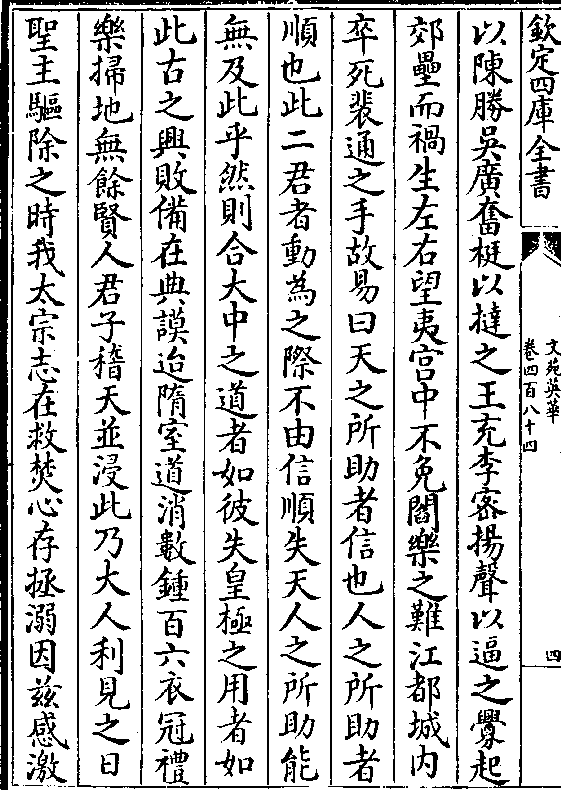 欽定四庫全書
文苑英華
卷四百八十四
四
以陳勝吳廣奮梃以撻之王充李密揚聲以逼之釁起
郊壘而禍生左右望夷宮中不免閻樂之難江都城内
卒死裴通之手故易曰天之所助者信也人之所助者
順也此二君者動為之際不由信順失天人之所助能
無及此乎然則合大中之道者如彼失皇極之用者如
此古之興敗備在典謨迨隋室道消數鍾百六衣冠禮
樂掃地無餘賢人君子稽天並浸此乃大人利見之日
聖主驅除之時我太宗志在救焚心存拯溺因兹感激